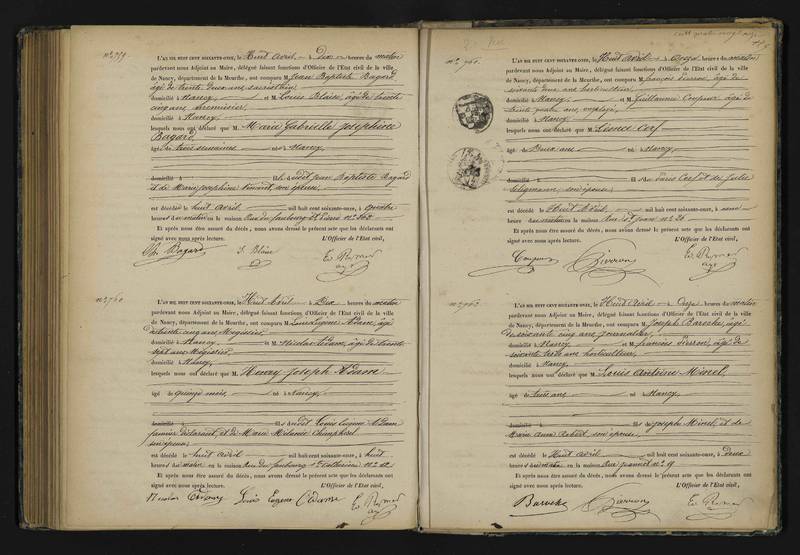 N° 759
L'AN MIL HUIT CENT SOIXANTE-ONZE, le Huit Avril à Dix heures du matin
pardevant nous Adjoint au Maire, délégué faisant fonctions d'Officier de l'Etat civil de la ville
de Nancy, département de la Meurthe, ont comparu M. Jean Baptiste Bagard
âgé de trente deux ans, sacristain,
domicilié à Nancy, et M. Louis Blaise, âgé de trente
cinq ans,
domicilié à Nancy,
lesquels nous ont déclaré que M. Marie Gabrielle Joséphine
Bagard,
âgé de trois semaines né à Nancy
domicilié à fille dudit Jean Baptiste Bagard
et de Marie Joséphine Vincent, son épouse,
est décédé le huit avril mil huit cent soixante-onze, à quatre
heures du matin en la maison Rue du faubourg St Pierre n°
Et après nous être assuré du décès, nous avons dressé le présent acte que les déclarants ont
signé avec nous après lecture. L'Officier de l'Etat civil,
Bagard L. Blaise
N° 760
L'AN MIL HUIT CENT SOIXANTE-ONZE, le Huit Avril à Dix heures du matin
pardevant nous Adjoint au Maire, délégué faisant fonctions d'Officier de l'Etat civil de la ville
de Nancy, département de la Meurthe, ont comparu M. Louis Eugène Adam, âgé
de trente cinq ans, Magasinier,
domicilié à Nancy, et M. Nicolas Adam, âgé de trente
sept ans, Magasinier,
domicilié à Nancy,
lesquels nous ont déclaré que M. Henry Joseph Adam
âgé de quinze mois, né à Nancy,
domicilié à fils dudit Louis Eugène Adam
premier déclarant, et de Marie Mélanie
son épouse,
est décédé le huit avril mil huit cent soixante-onze, à huit
heures du matin en la maison Rue du faubourg Ste Catherine n° 12
Et après nous être assuré du décès, nous avons dressé le présent acte que les déclarants ont
signé avec nous après lecture. L'Officier de l'Etat civil,
Nicolas Adam Louis Eugène Adam
L'AN MIL HUIT CENT SOIXANTE-ONZE, le Huit Avril à Onze heures du matin
pardevant nous Adjoint au Maire, délégué faisant fonctions d'Officier de l'Etat civil de la ville
de Nancy, département de la Meurthe, ont comparu M. François Pierron, âgé de
soixante deux ans, horticulteur,
domicilié à Nancy, et M. Guillaume
trente quatre ans, employé,
domicilié à Nancy,
lesquels nous ont déclaré que M. Léonce Cerf
âgé de Deux ans né à Nancy,
domicilié à fils de Cerf et de Julie
Seligmann, son épouse,
est décédé le Huit Avril mil huit cent soixante-onze, à une
heures du matin en la maison Rue St Jean n° 26
Et après nous être assuré du décès, nous avons dressé le présent acte que les déclarants ont
signé avec nous après lecture. L'Officier de l'Etat civil,
Pierron
L'AN MIL HUIT CENT SOIXANTE-ONZE, le Huit Avril à Onze heures du matin
pardevant nous Adjoint au Maire, délégué faisant fonctions d'Officier de l'Etat civil de la ville
de Nancy, département de la Meurthe, ont comparu M. Joseph Baroche, âgé
de soixante cinq ans, journalier,
domicilié à Nancy et M. François Pierron, âgé de
soixante deux ans, horticulteur,
domicilié à Nancy,
lesquels nous ont déclaré que M. Louis Antoine Minel
âgé de trois ans, né à Nancy,
domicilié à fils de Joseph Minel et de
Marie Anne Robert, son épouse,
est décédé le Huit Avril mil huit cent soixante-onze, à deux
heures du matin en la maison Rue Jeannot n° 19
Et après nous être assuré du décès, nous avons dressé le présent acte que les déclarants ont
signé avec nous après lecture. L'Officier de l'Etat civil,
Baroche Pierron